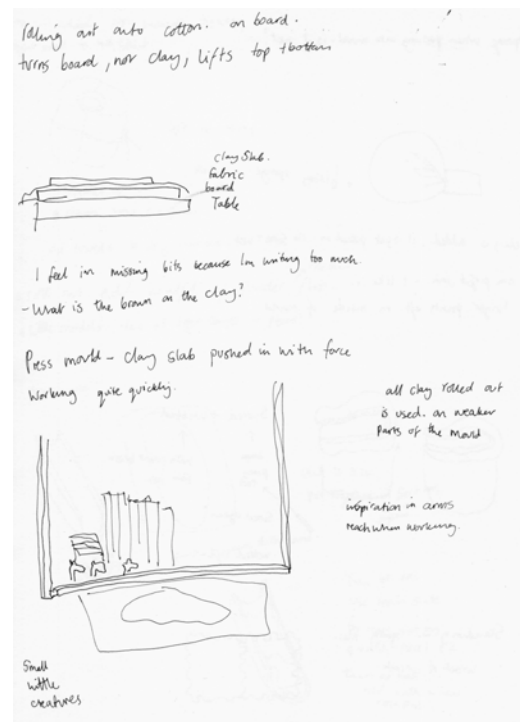 rolling out onto cotton. on board.
turns board, not clay, lifts top + bottom
clay slab.
fabric
board
Table
I feel im missing bits because Im writing too much.
- What is the brown on the clay?
Press mould - clay slab pushed in with force
working quite quickly.
all clay rolled out
is used. on weaker
parts of the mould
inspiration in arms
reach when working.
Small
little
creatures